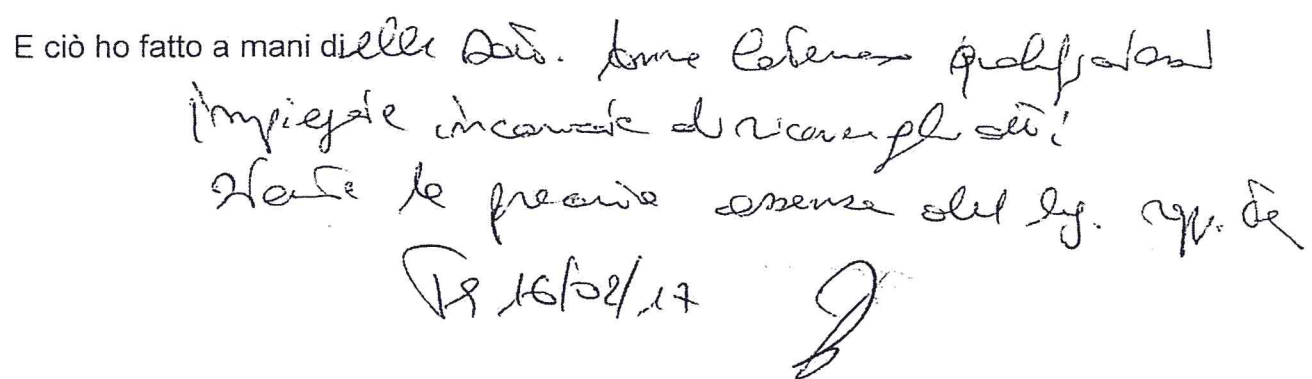 E ciò ho fatto a mani di della Dott. Anna qualificatasi
impiegata incaricata di ricevere gli atti
stante la precaria assenza del leg. rapp. te
16/02/17